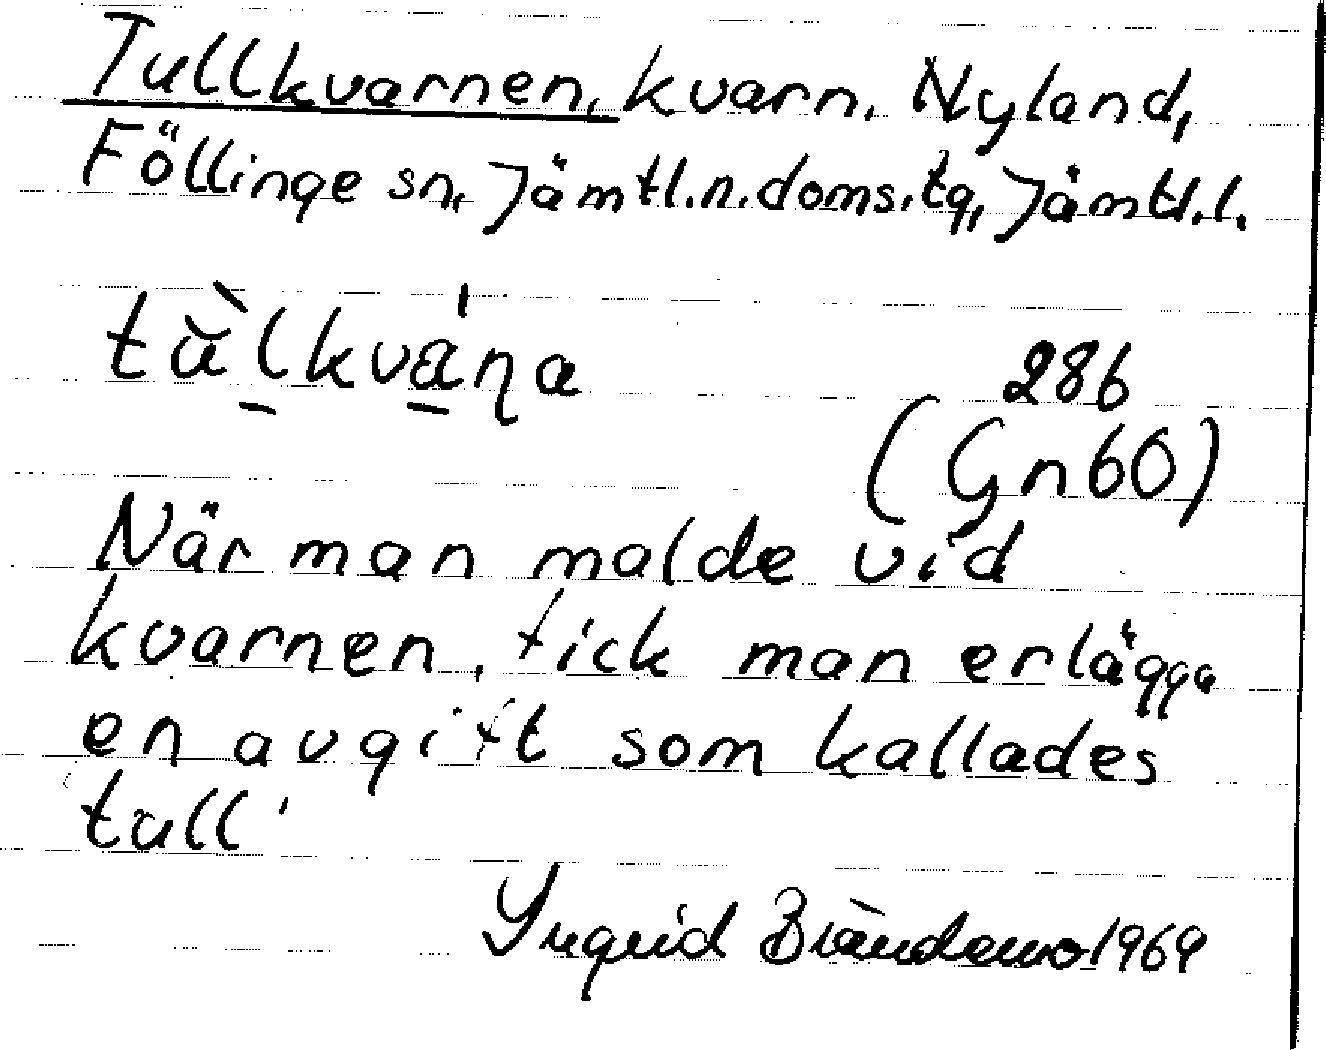 Tullkvarnen, kvarn. Nyland,
Föllinge sn, Jämtl.n.doms.tg, Jämtl.l.
tùlkvána
286
(Gn60)
När man malde vid
kvarnen, fick man erlägga
en avgift som kallades
tull'
Yngrid Brändemo 1969